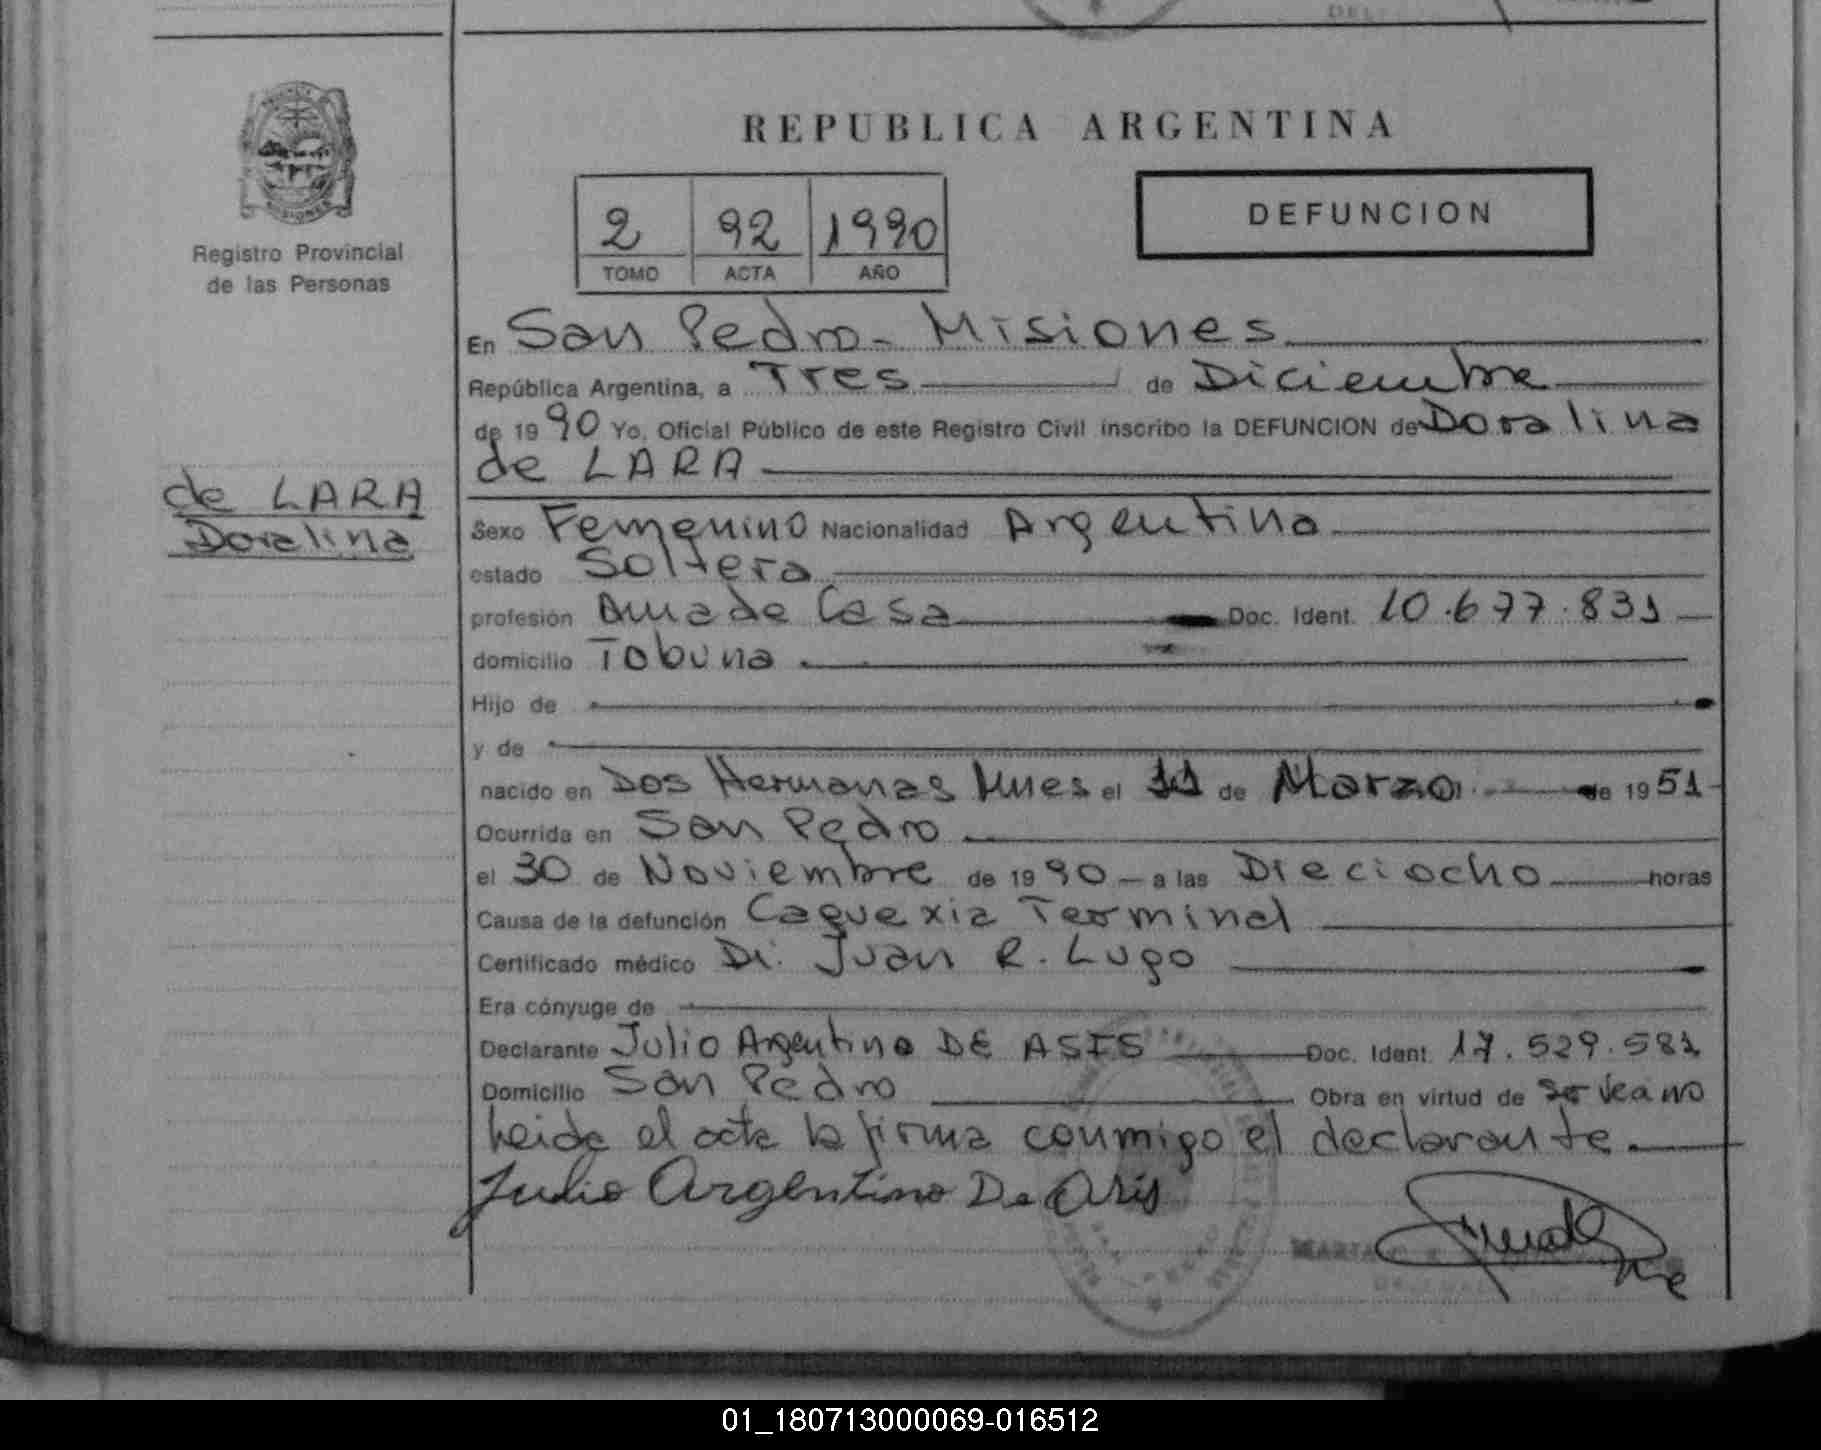 REPUBLICA ARGENTINA
Registro Provincial
de las Personas
2 92 1990
TOMO ACTA AÑO
DEFUNCION
En San Pedro - Misiones
República Argentina, a Tres de Diciembre
de 1990 Yo, Oficial Público de este Registro Civil inscribo la DEFUNCION de Doralina
de LARA
de LARA
Doralina
Sexo Femenino Nacionalidad Argentina
estado Soltera
profesión Ama de Casa Doc. Ident. 10.677.831
domicilio Tobuna
Hijo de
y de
nacido en Dos Hermanas Mnes el 11 de Marzo de 1951
Ocurrida en San Pedro
el 30 de Noviembre de 1990 - a las Dieciocho horas
Causa de la defunción Caquexia Terminal
Certificado médico Dr. Juan R. Lugo
Era cónyuge de
Declarante Julio Argentino DE ASIS Doc. Ident. 17.529.581
Domicilio San Pedro Obra en virtud de
Leida el acta la firma conmigo el declarante.
Julio Argentino De Asis
01_180713000069-016512